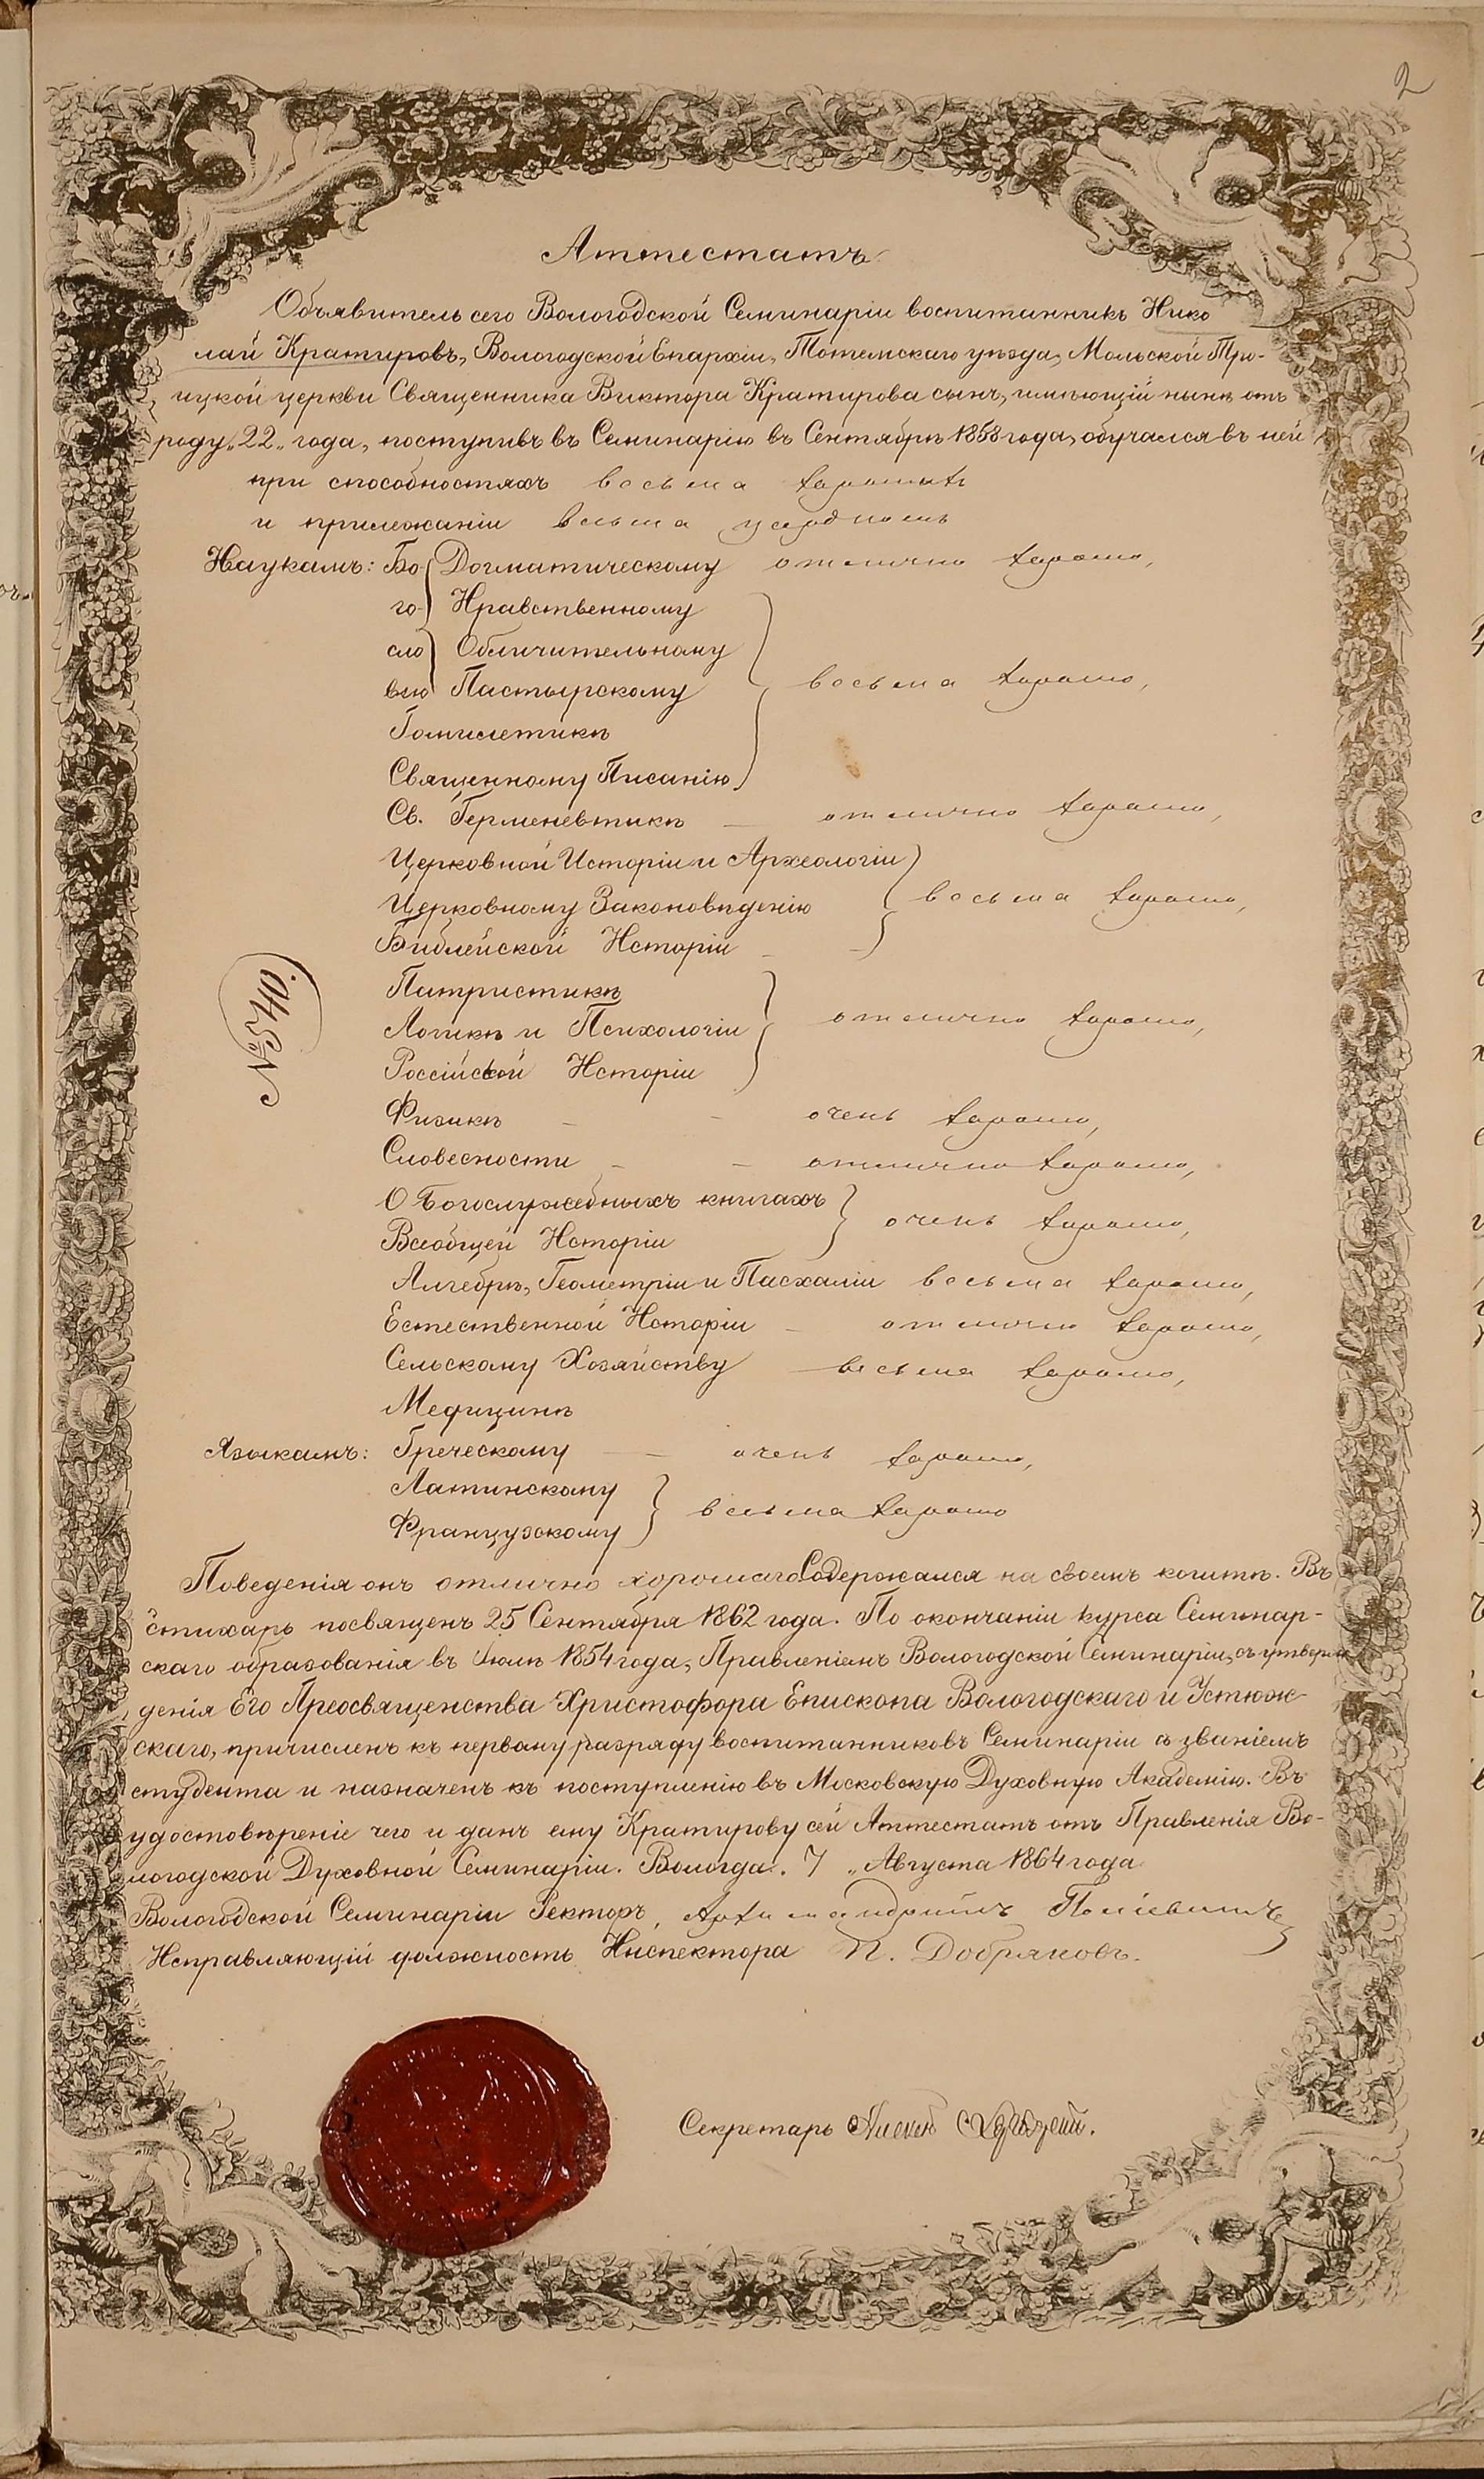 2
Аттестатъ
Объявитель сего Вологодской Семинаріи воспитанникъ Нико
лай Кратировъ, Вологодской Епархіи, Тотемскаго уѣзда, Мольской Тро-
ицкой церкви Священника Виктора Кратирова сынъ, имѣющій нынѣ отъ
роду „22„ года, поступивъ въ Семинарію въ Сентябрѣ 1858 года, обучался въ ней
при способностяхъ весьма хорошихъ
и прилежаніи весьма усердномъ
Наукамъ: Бо- Догматическому отлично хорошо,
го- Нравственному
сло Обличительному
вію Пастырскому весьма хорошо,
Гомилетикѣ
Священному Писанію
Св. Герменевтикѣ — отлично хорошо,
Церковной Исторіи и Археологіи
Церковному Законовѣденію весьма хорошо,
Библейской Исторіи
Патристикѣ
Логикѣ и Психологіи отлично хорошо,
Россійской Исторіи
№ 540.
Физикѣ – – очень хорошо,
Словесности – – отлично хорошо,
О Богослужебныхъ книгахъ
Всеобщей Исторіи очень хорошо,
Алгебрѣ, Геометріи и Пасхаліи весьма хорошо,
Естественной Исторіи – отлично хорошо,
Сельскому Хозяйству весьма хорошо,
Медицинѣ
Языкамъ: Греческому — — очень хорошо,
Латинскому
Французскому весьма хорошо
Поведенія онъ отлично хорошаго Содержался на своемъ коштѣ. Въ
стихарь посвященъ 25 Сентября 1862 года. По окончаніи курса Семинар-
скаго образованія въ Іюлѣ 1854 года, Правленіемъ Вологодской Семинаріи, съ утверж
денія Его Преосвященства Христофора Епископа Вологодскаго и Устюж-
скаго, причисленъ къ первому разряду воспитанниковъ Семинаріи съ званіемъ
студента и назначенъ къ поступленію въ Московскую Духовную Академію. Въ
удостовѣреніе чего и данъ ему Кратирову сей Аттестатъ отъ Правленія Во-
логодской Духовной Семинаріи. Вологда. 7 „ Августа 1864 года
Вологодской Семинаріи Ректоръ, Архимандритъ
Исправляющій должность Инспектора П. Добряковъ.
Секретарь